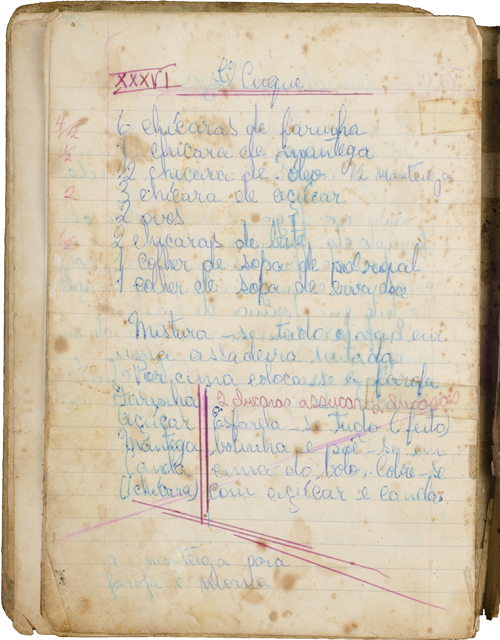 XXXVI Cuque
4/2 6 chícaras de farinha
1/2 1 chícara de manteiga
1/2 chícara de óleo 1/2 manteiga
2 3 chícara de açúcar
2 ovos
2 chícaras de leite
1 colher de sopa de pó royal
1 colher de sopa de
Mistura-se tudo e põe em
uma assadeira untada
Por cima colocasse a farofa
Farinha 2 chicaras assucar 2 chicaras
Açúcar Esfarela-se tudo (feito)
Manteiga bolinha e põe-se em
Canela cima do bolo. Cobre-se
(1 chícara) com açúcar e canela.
a manteiga para
farofa é morna